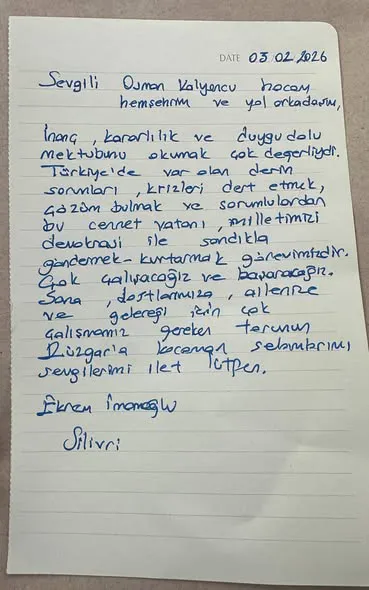 DATE 03 02 2026
Sevgili Osman Kalyoncu hocam
hemşehrim ve yol arkadaşım,
İnanç, kararlılık ve duygu dolu
mektubunu okumak çok değerliydi.
Türkiye'de var olan derin
sorunları, krizleri dert etmek,
çözüm bulmak ve sorumlulardan
bu cennet vatanı, milletimizi
demokrasi ile sandıkla
göndermek-kurtarmak görevimizdir.
Çok çalışacağız ve başaracağız.
Sana, dostlarımıza, ailenize
ve geleceği için çok
çalışmamız gereken torunun
Rüzgar'a kocaman selamlarımı
sevgilerimi ilet lütfen.
Ekrem İmamoğlu
Silivri